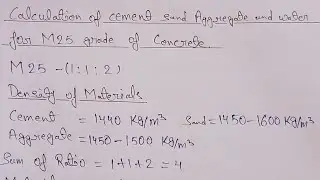 Calculation of cement sand Aggregate and water
for M25 grade of Concrete.
M25 - (1:1:2)
Density of Materials
Cement = 1440 Kg/m³ Sand = 1450-1600 Kg/m³
Aggregate = 1450 - 1500 Kg/m³
Sum of Ratio = 1+1+2 = 4